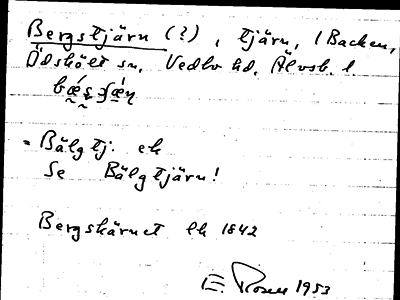 Bergstjärn (?), tjärn, (Backen,
Ödskölt sn, Vedbo hd, Älvsb. l.
= Bälgtj. ek
Se Bälgtjärn!
Bergskärnet lk 1842
E. Rosell 1953